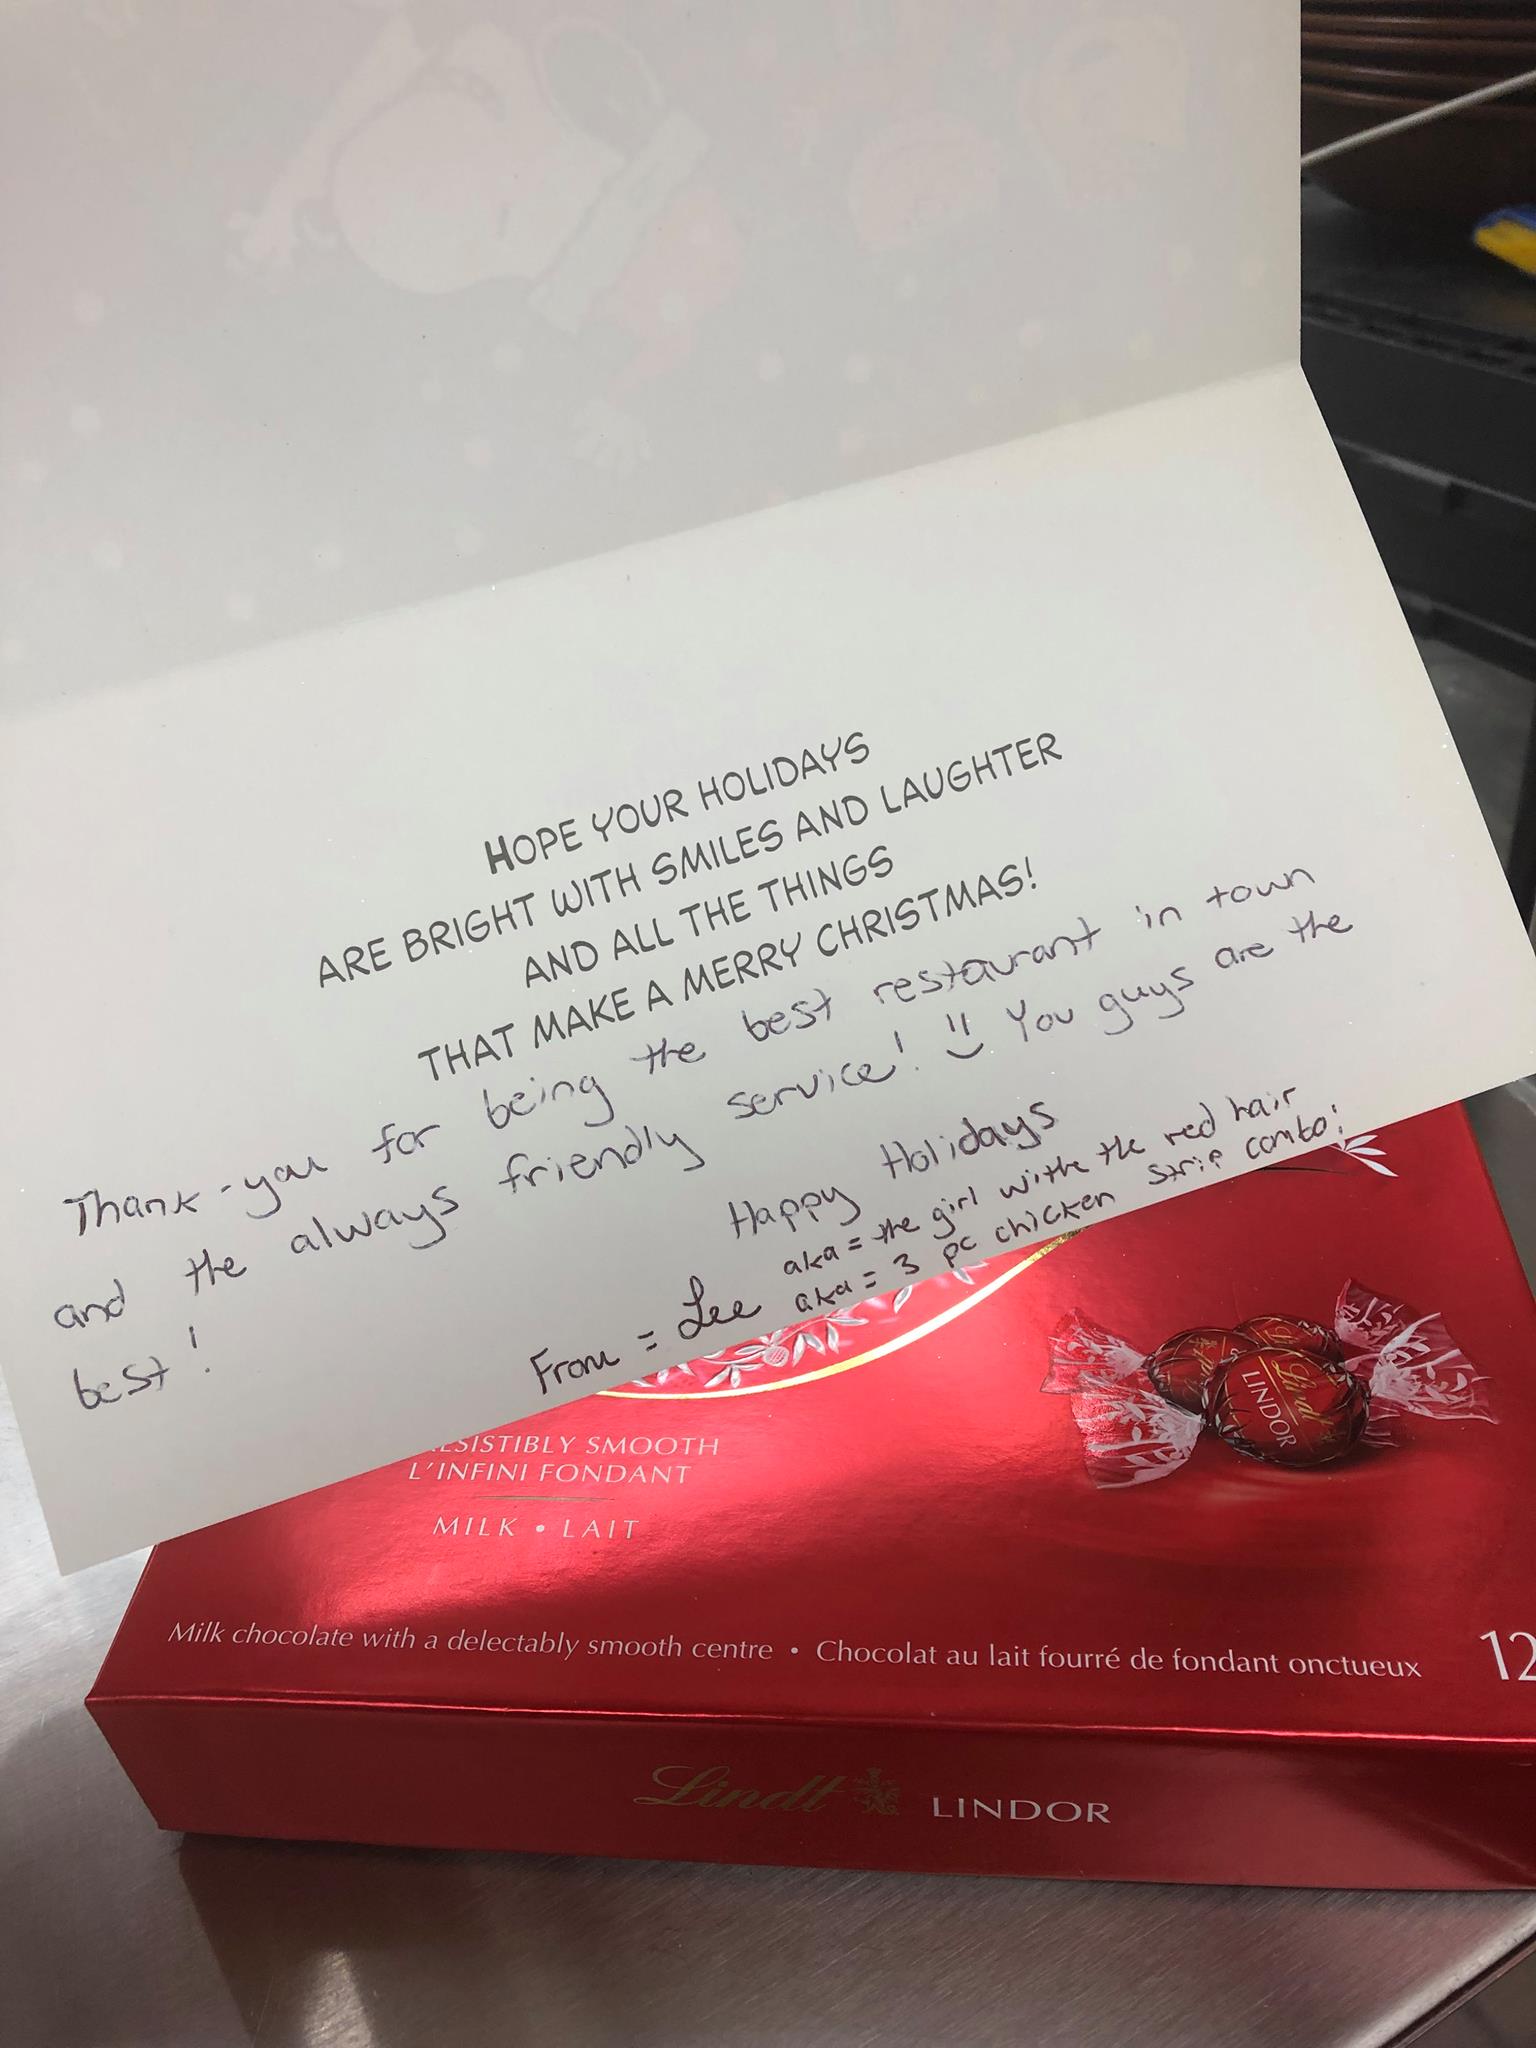 HOPE YOUR HOLIDAYS
ARE BRIGHT WITH SMILES AND LAUGHTER
AND ALL THE THINGS
THAT MAKE A MERRY CHRISTMAS!
Thank-you for being the best restaurant in town
and the always friendly service! You guys are the
best!
Happy Holidays
From = Lee
aka = the girl withe the red hair
aka = 3 pc chicken strip combo!
ESISTIBLY SMOOTH
L'INFINI FONDANT
MILK • LAIT
Lindt
LINDOR
Milk chocolate with a delectably smooth centre • Chocolat au lait fourré de fondant onctueux
12
Lindt LINDOR